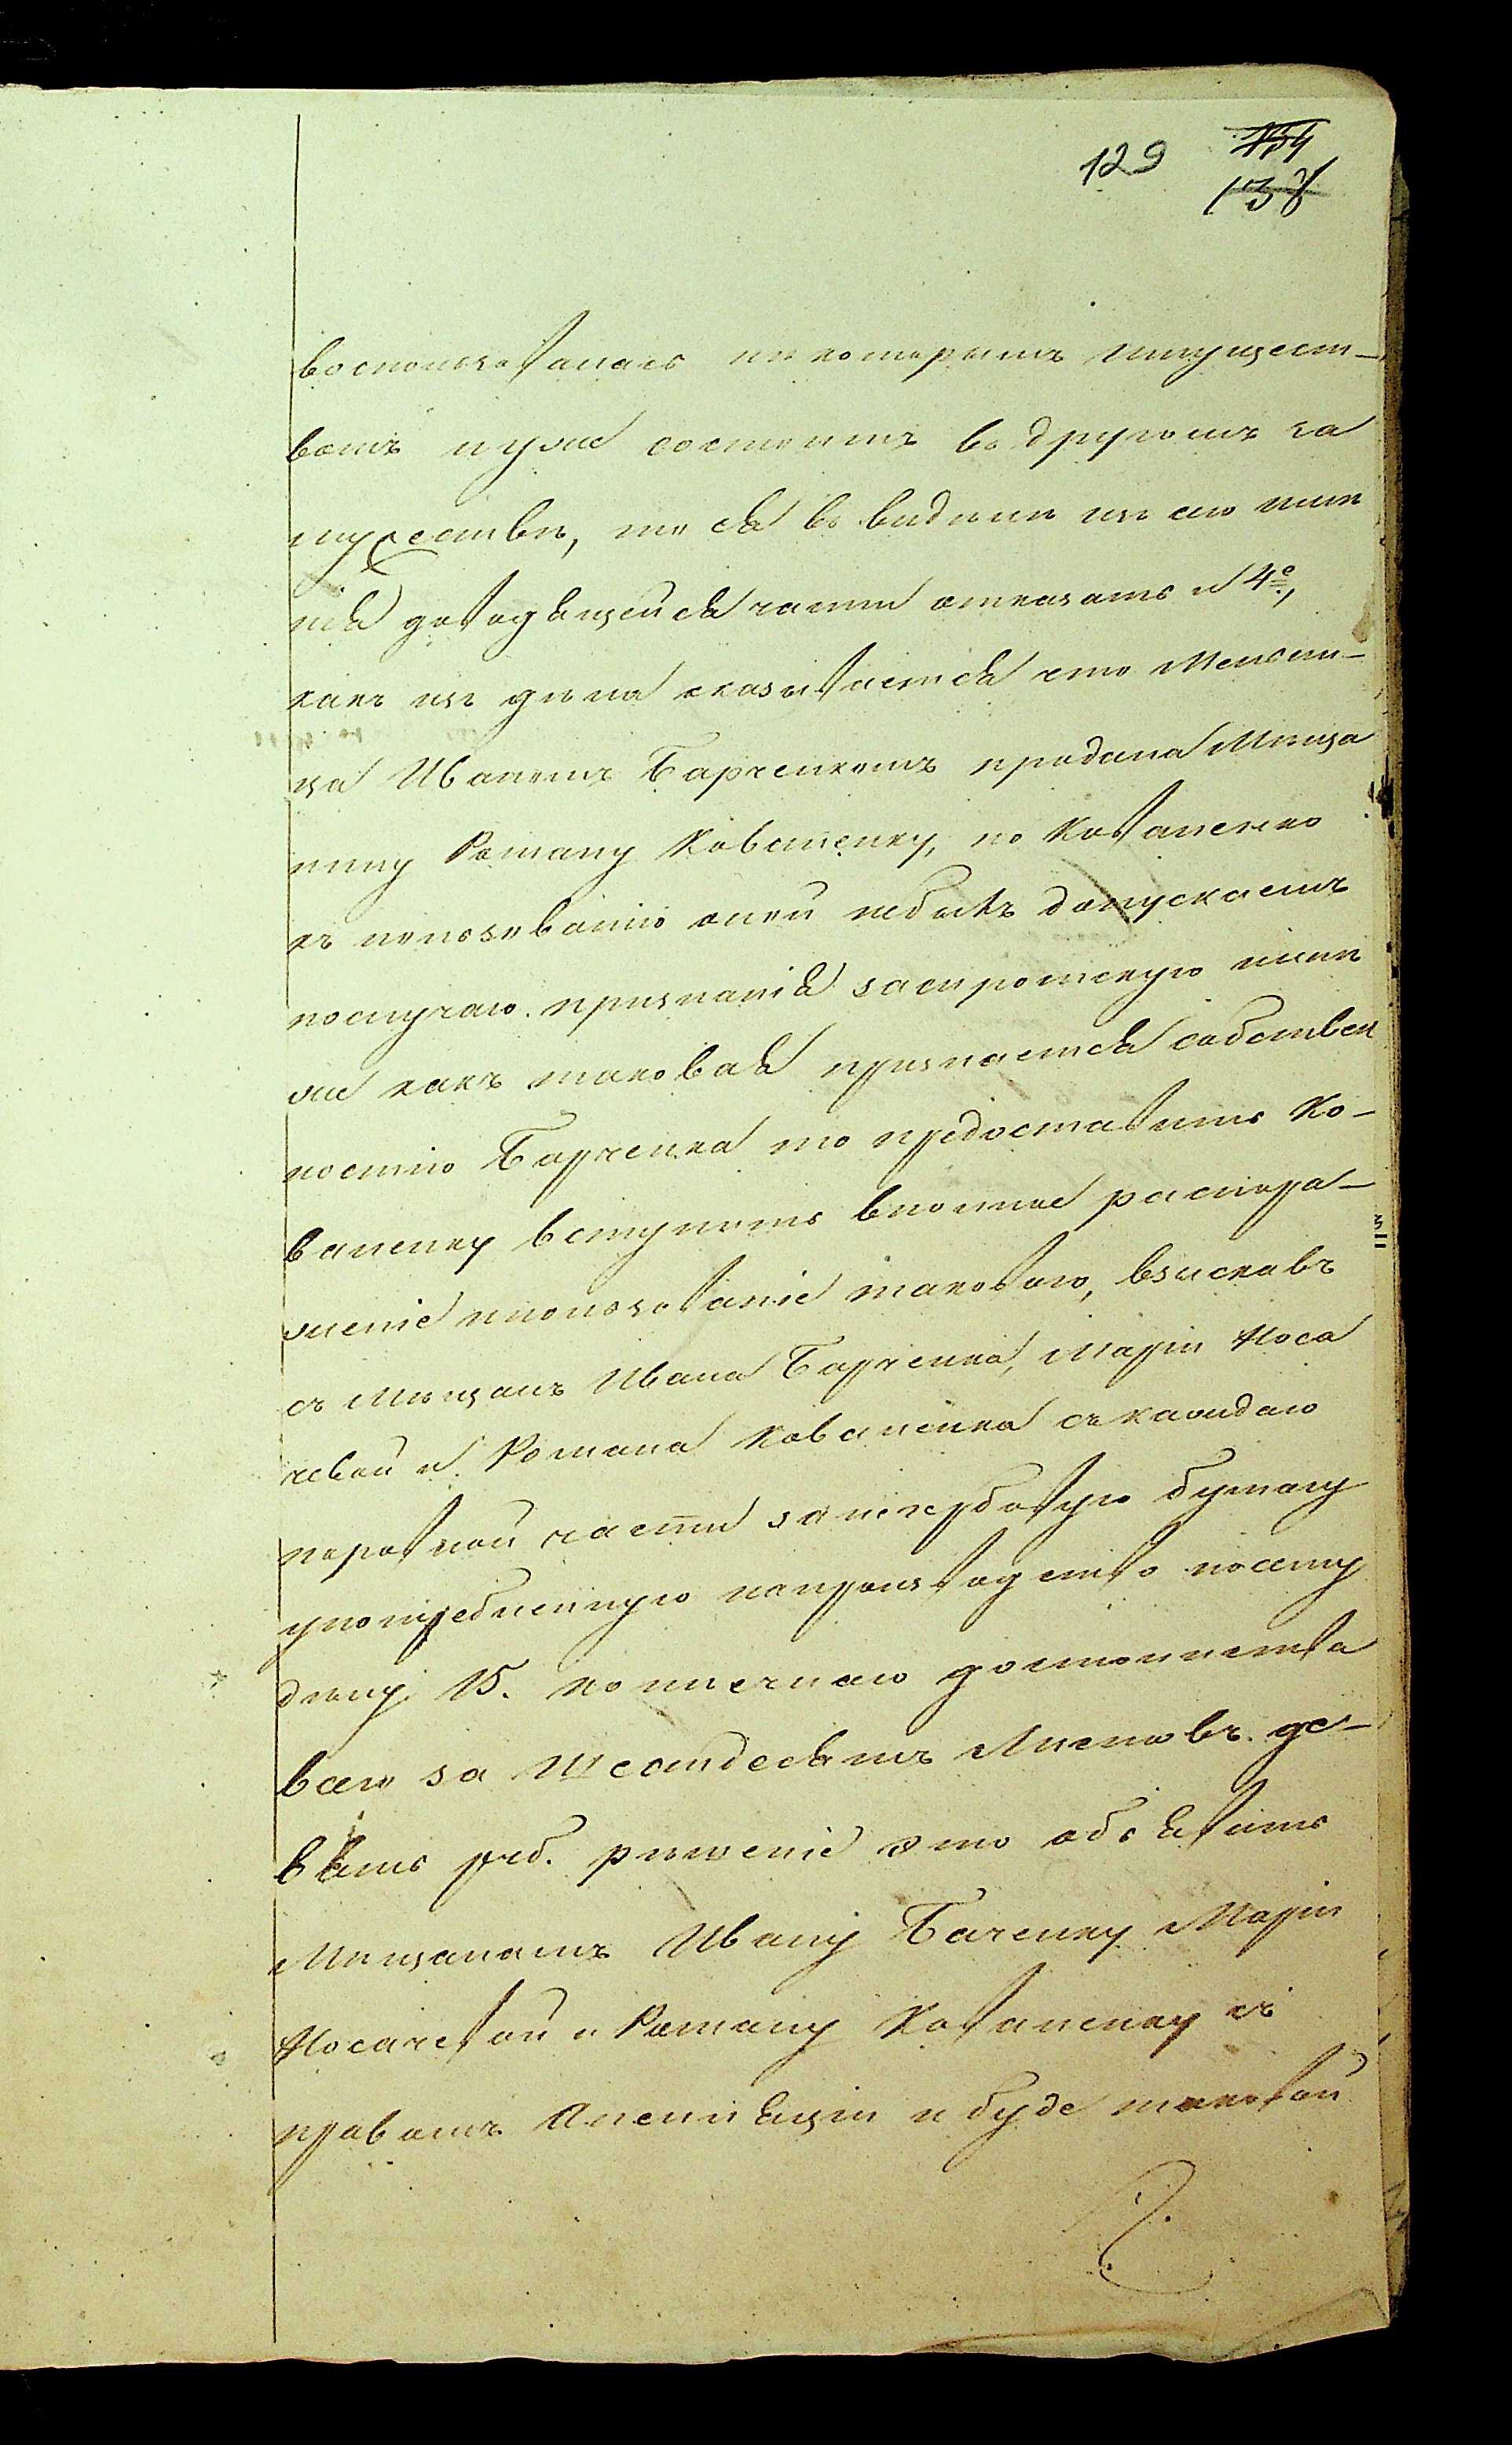 129 154
138
воспользовалась некоторымъ имущест-
вомъ и уже состоитъ въ другомъ за
мужествѣ, то ей въ выдѣлѣ изъ сего имѣ
нія доводящейся части отказать и 4е,
какъ изъ дѣла оказывается что
Иваномъ Барченкомъ продана Мѣща
нину Роману Коваленку, но Коваленко
къ пользованію оной небылъ допускаемъ
послучаю признанія засиротскую
же какъ таковая признается собствен
ностію Барченка то предоставить Ко-
валенку вступить вполное распоря-
женіе ипользованіе таковаго, взыскавъ
съ Мѣщанъ Ивана Барченка, Маріи Носа
чевой и Романа Коваленка съ каждаго
поровной части загербовую бумагу
употребленную напроизводство посему
дѣлу 15. копѣечнаго достоинства
всего за Шестдесятъ Листовъ де-
вять руб. рѣшеніе это объявить
Мѣщанамъ Ивану Барченку Маріи
Носачевой и Роману Коваленку съ
правомъ Апелляціи и буде таковой